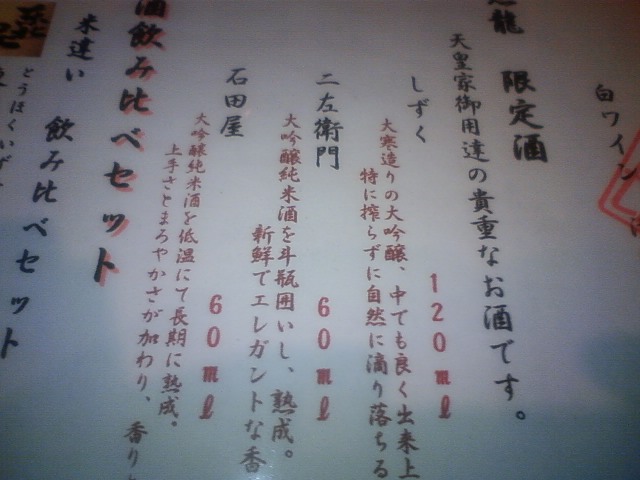 白ワイン
龍 限定酒
天皇家御用達の貴重なお酒です。
しずく 120ml
大寒造りの大吟醸、中でも良く出来上
特に搾らずに自然に滴り落ちる
二左衛門 60ml
大吟醸純米酒を斗瓶囲いし、熟成。
新鮮でエレガントな香
石田屋 60ml
大吟醸純米酒を低温にて長期に熟成。
上手さとまろやかさが加わり、香り
酒飲み比べセット
米違い 飲み比べセット
とうほくいず